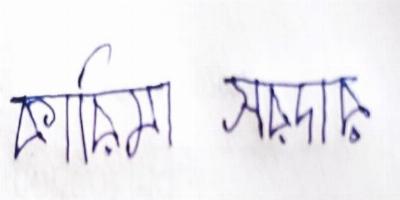 কারিমা সরদার